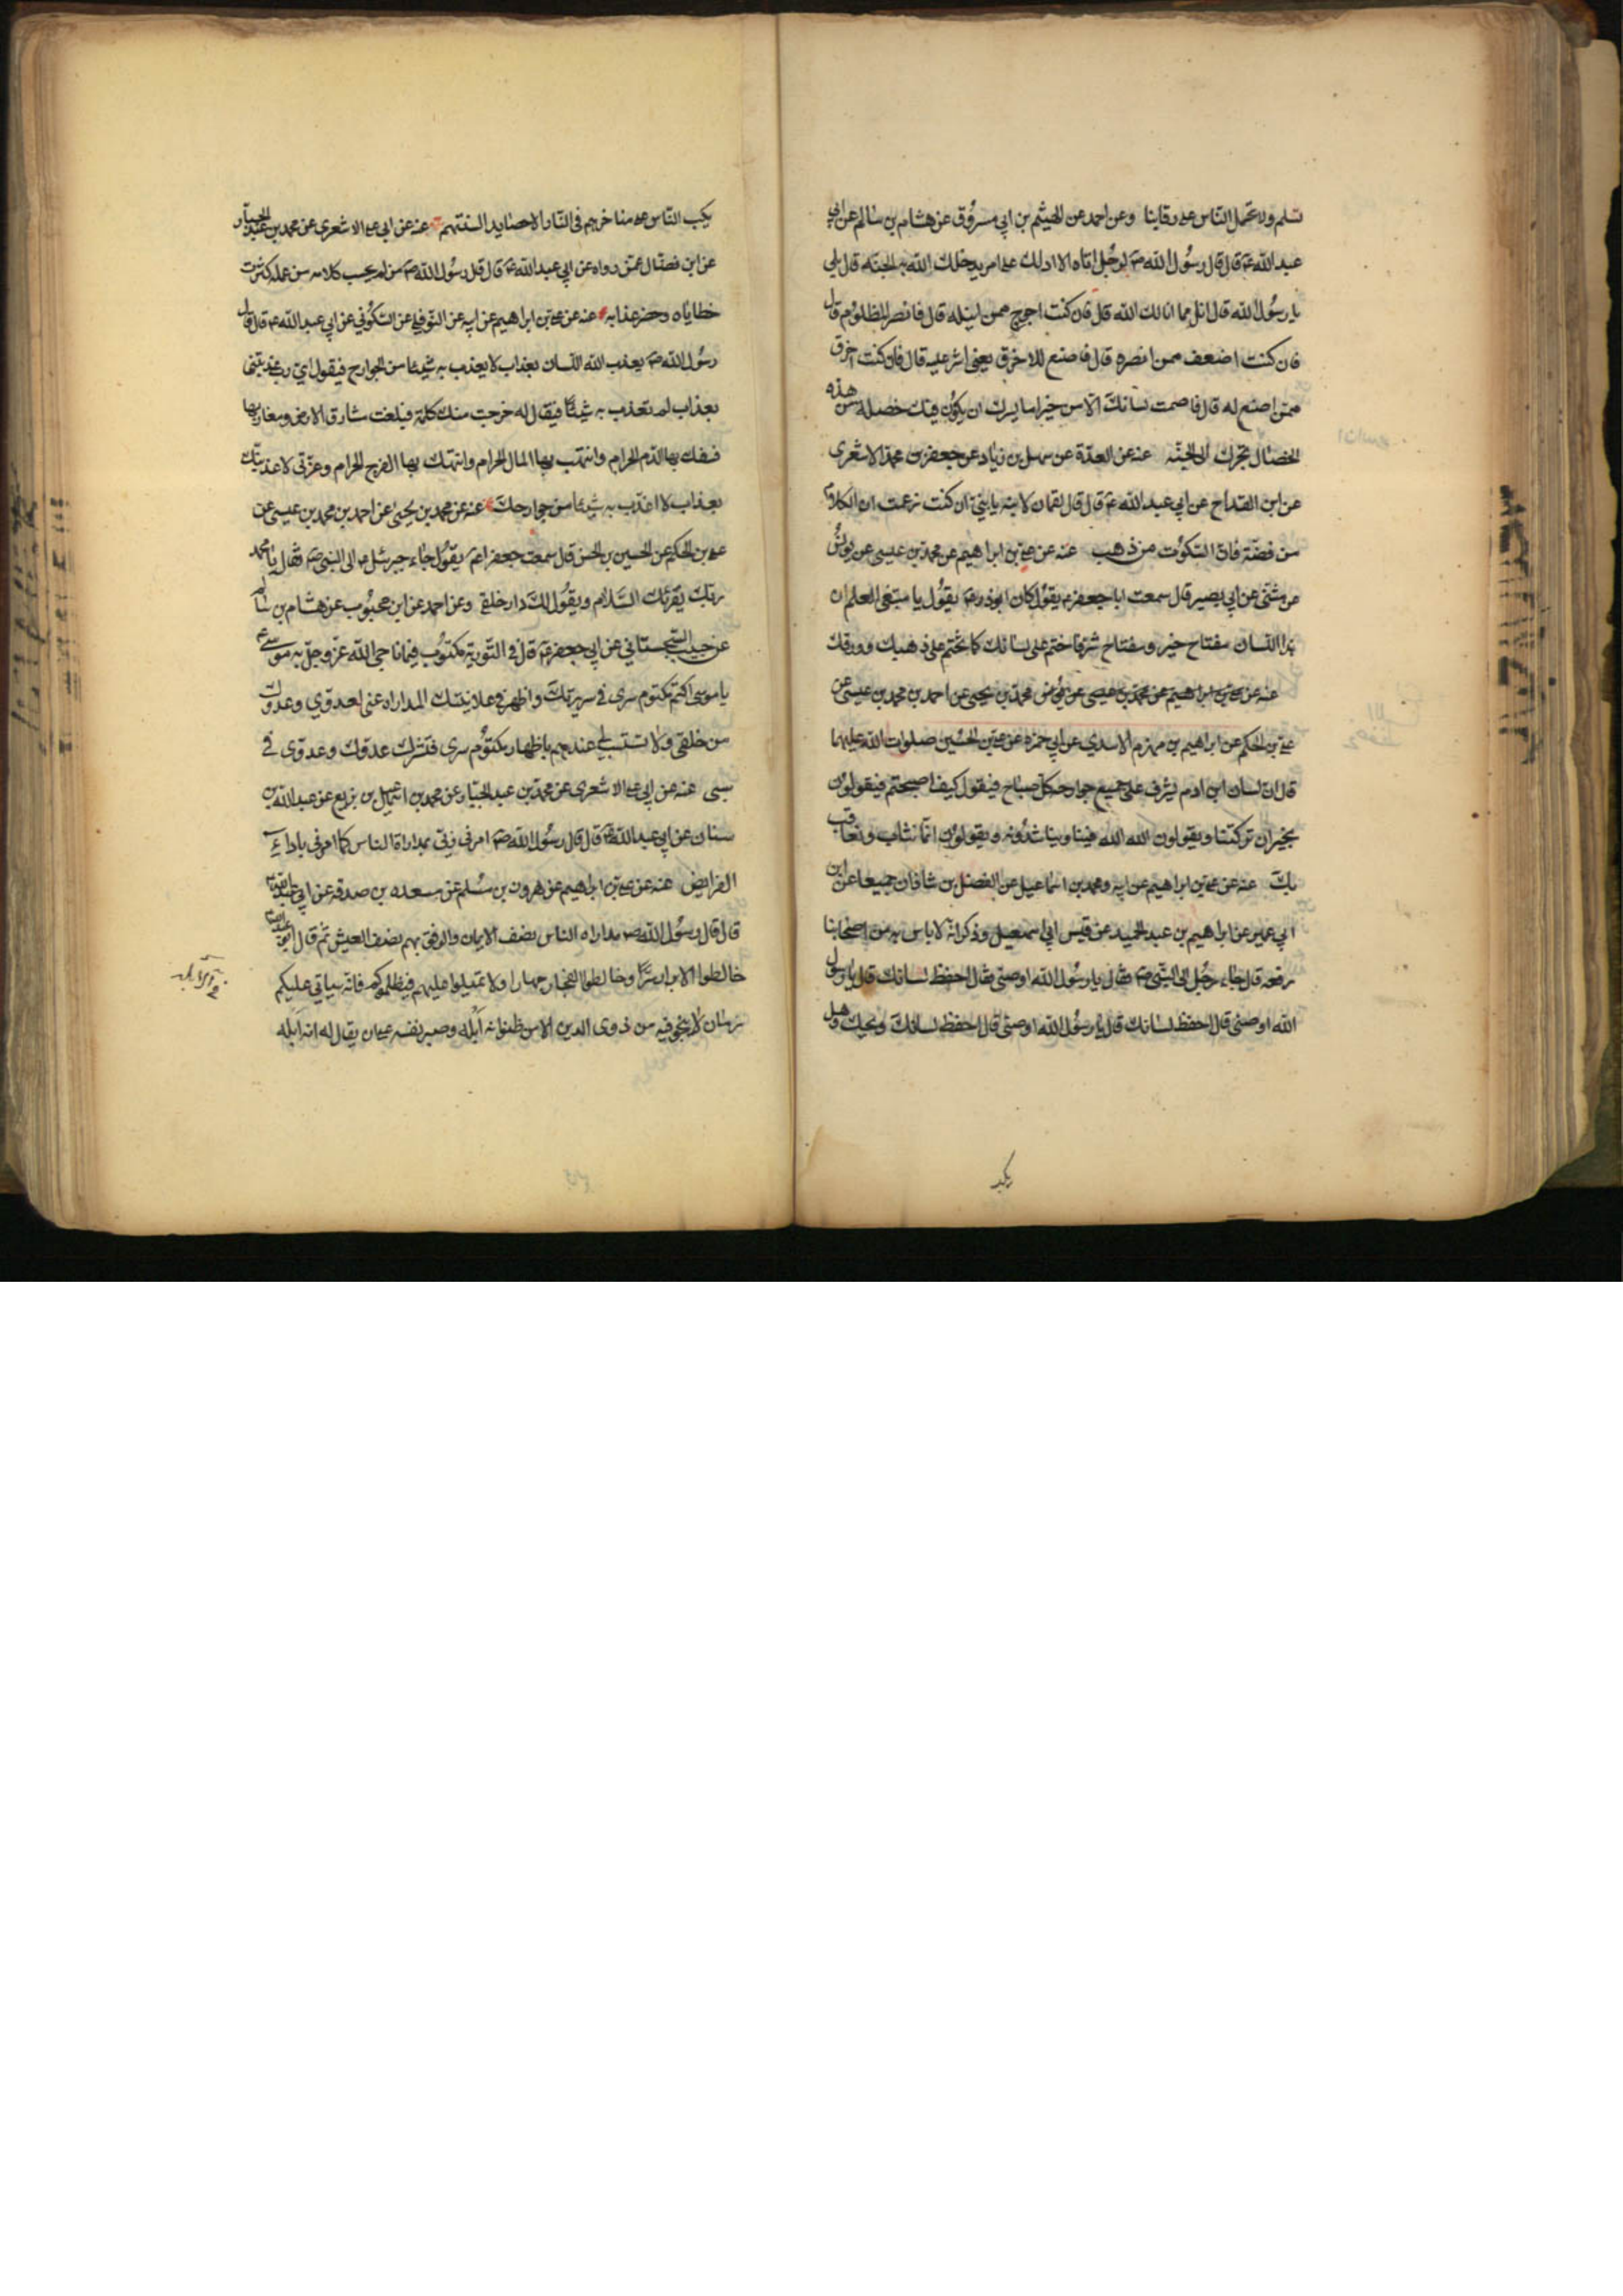 تسلم ولا تحمل الناس على رقابنا وعن احمد عن الهيثم بن ابي مسروق عن هشام بن سالم عن ابي
عبد الله ع قال قال رسول الله ص لرجل اتاه الا ادلك على امر يدخلك الله به الجنة قال بلى
يا رسول الله قال انل مما انالك الله قال فان كنت احوج ممن انيله قال فانصر المظلوم قال
فان كنت اضعف ممن انصره قال فاصنع للاخرق يعني اشر عليه قال فان كنت اخرق
ممن اصنع له قال فاصمت لسانك الا من خير اما يسرك ان يكون فيك خصلة من هذه
الخصال تجرك الى الجنة عنه عن العدة عن سهل بن زياد عن جعفر بن محمد الاشعرى
عن ابن القداح عن ابي عبد الله ع قال قال لقمان لابنه يا بني ان كنت زعمت ان الكلام
من فضة فان السكوت من ذهب عنه عن علي بن ابراهيم عن محمد بن عيسى عن يونس
عن مثنى عن ابي بصير قال سمعت ابا جعفر ع يقول كان ابوذر ره يقول يا مبتغى العلم ان
هذا اللسان مفتاح خير ومفتاح شر فاختم على لسانك كما تختم على ذهبك وورقك
عنه عن علي بن ابراهيم عن محمد بن عيسى عن يونس محمد بن يحيى عن احمد بن محمد بن عيسى عن
علي بن الحكم عن ابراهيم بن مهزم الاسدي عن ابي حمزه عن علي بن الحسين صلوات الله عليهما
قال ان لسان ابن ادم يشرف على جميع جوارحه كل صباح فيقول كيف اصبحتم فيقولون
بخير ان تركتنا ويقولون الله الله فينا ويناشدونه ويقولون انما نثاب ونعاقب
بك عنه عن علي بن ابراهيم عن ابيه ومحمد بن اسماعيل عن الفضل بن شاذان جميعا عن ابن
ابي عمير عن ابراهيم بن عبد الحميد عن قيس ابي اسمعيل وذكر انه لا باس به من اصحابنا
رفعه قال جاء رجل الى النبي ص فقال يا رسول الله اوصني فقال احفظ لسانك قال يا رسول
الله اوصني قال احفظ لسانك قال يا رسول الله اوصني قال احفظ لسانك ويحك وهل
يكب
يكب الناس على مناخرهم في النار الا حصايد السنتهم عنه عن ابي على الاشعرى عن محمد بن عبد الجبار
عن ابن فضال عمن رواه عن ابي عبد الله ع قال قال رسول الله ص من لم يحسب كلامه من عمله كثرت
خطاياه وحضر عذابه عنه عن علي بن ابراهيم عن ابيه عن النوفلي عن السكوني عن ابي عبد الله ع قال قال
رسول الله ص يعذب الله اللسان بعذاب لا يعذب به شيئا من الجوارح فيقول اي رب عذبتني
بعذاب لم تعذب به شيئا فيقال له خرجت منك كلمة فبلغت مشارق الارض ومغاربها
فسفك بها الدم الحرام وانتهب بها المال الحرام وانتهك بها الفرج الحرام وعزتى لاعذبنك
بعذاب لا اعذب به شيئا من جوارحك عنه عن محمد بن يحيى عن احمد بن محمد بن عيسى عن
على بن الحكم عن الحسين بن الحسن قال سمعت جعفرا ع يقول جاء جبرئيل ع الى النبي ص فقال يا محمد
ربك يقرئك السلام ويقول لك دار خلقى وعن احمد عن ابن محبوب عن هشام بن سالم
عن حبيب السجستاني عن ابي جعفر ع قال في التورية مكتوب فيما ناجى الله عز وجل به موسى ع
يا موسى اكتم مكتوم سرى في سريرتك واظهر في علانيتك المداراه عنى لعدوي وعدوك
من خلقى ولا تستسب لي عندهم باظهار مكتوم سرى فتشرك عدوك وعدوى في
سبى عنه عن ابي على الاشعرى عن محمد بن عبد الجبار عن محمد بن اسمعيل بن بزيع عن عبد الله بن
سنان عن ابي عبد الله ع قال قال رسول الله ص امرنى ربي بمداراة الناس كما امرنى باداء
الفرايض عنه عن علي بن ابراهيم عن هرون بن مسلم عن مسعده بن صدقه عن ابي عبد الله ع
قال قال رسول الله ص مداراه الناس نصف الايمان والرفق بهم نصف العيش ثم قال ابو عبد الله ع
خالطوا الابرار سرا وخالطوا الفجار جهارا ولا تميلوا عليهم فيظلموكم فانه سياتي عليكم
زمان لا ينجو فيه من ذوى الدين الا من ظنوا انه ابله وصبر نفسه على ان يقال له انه ابله